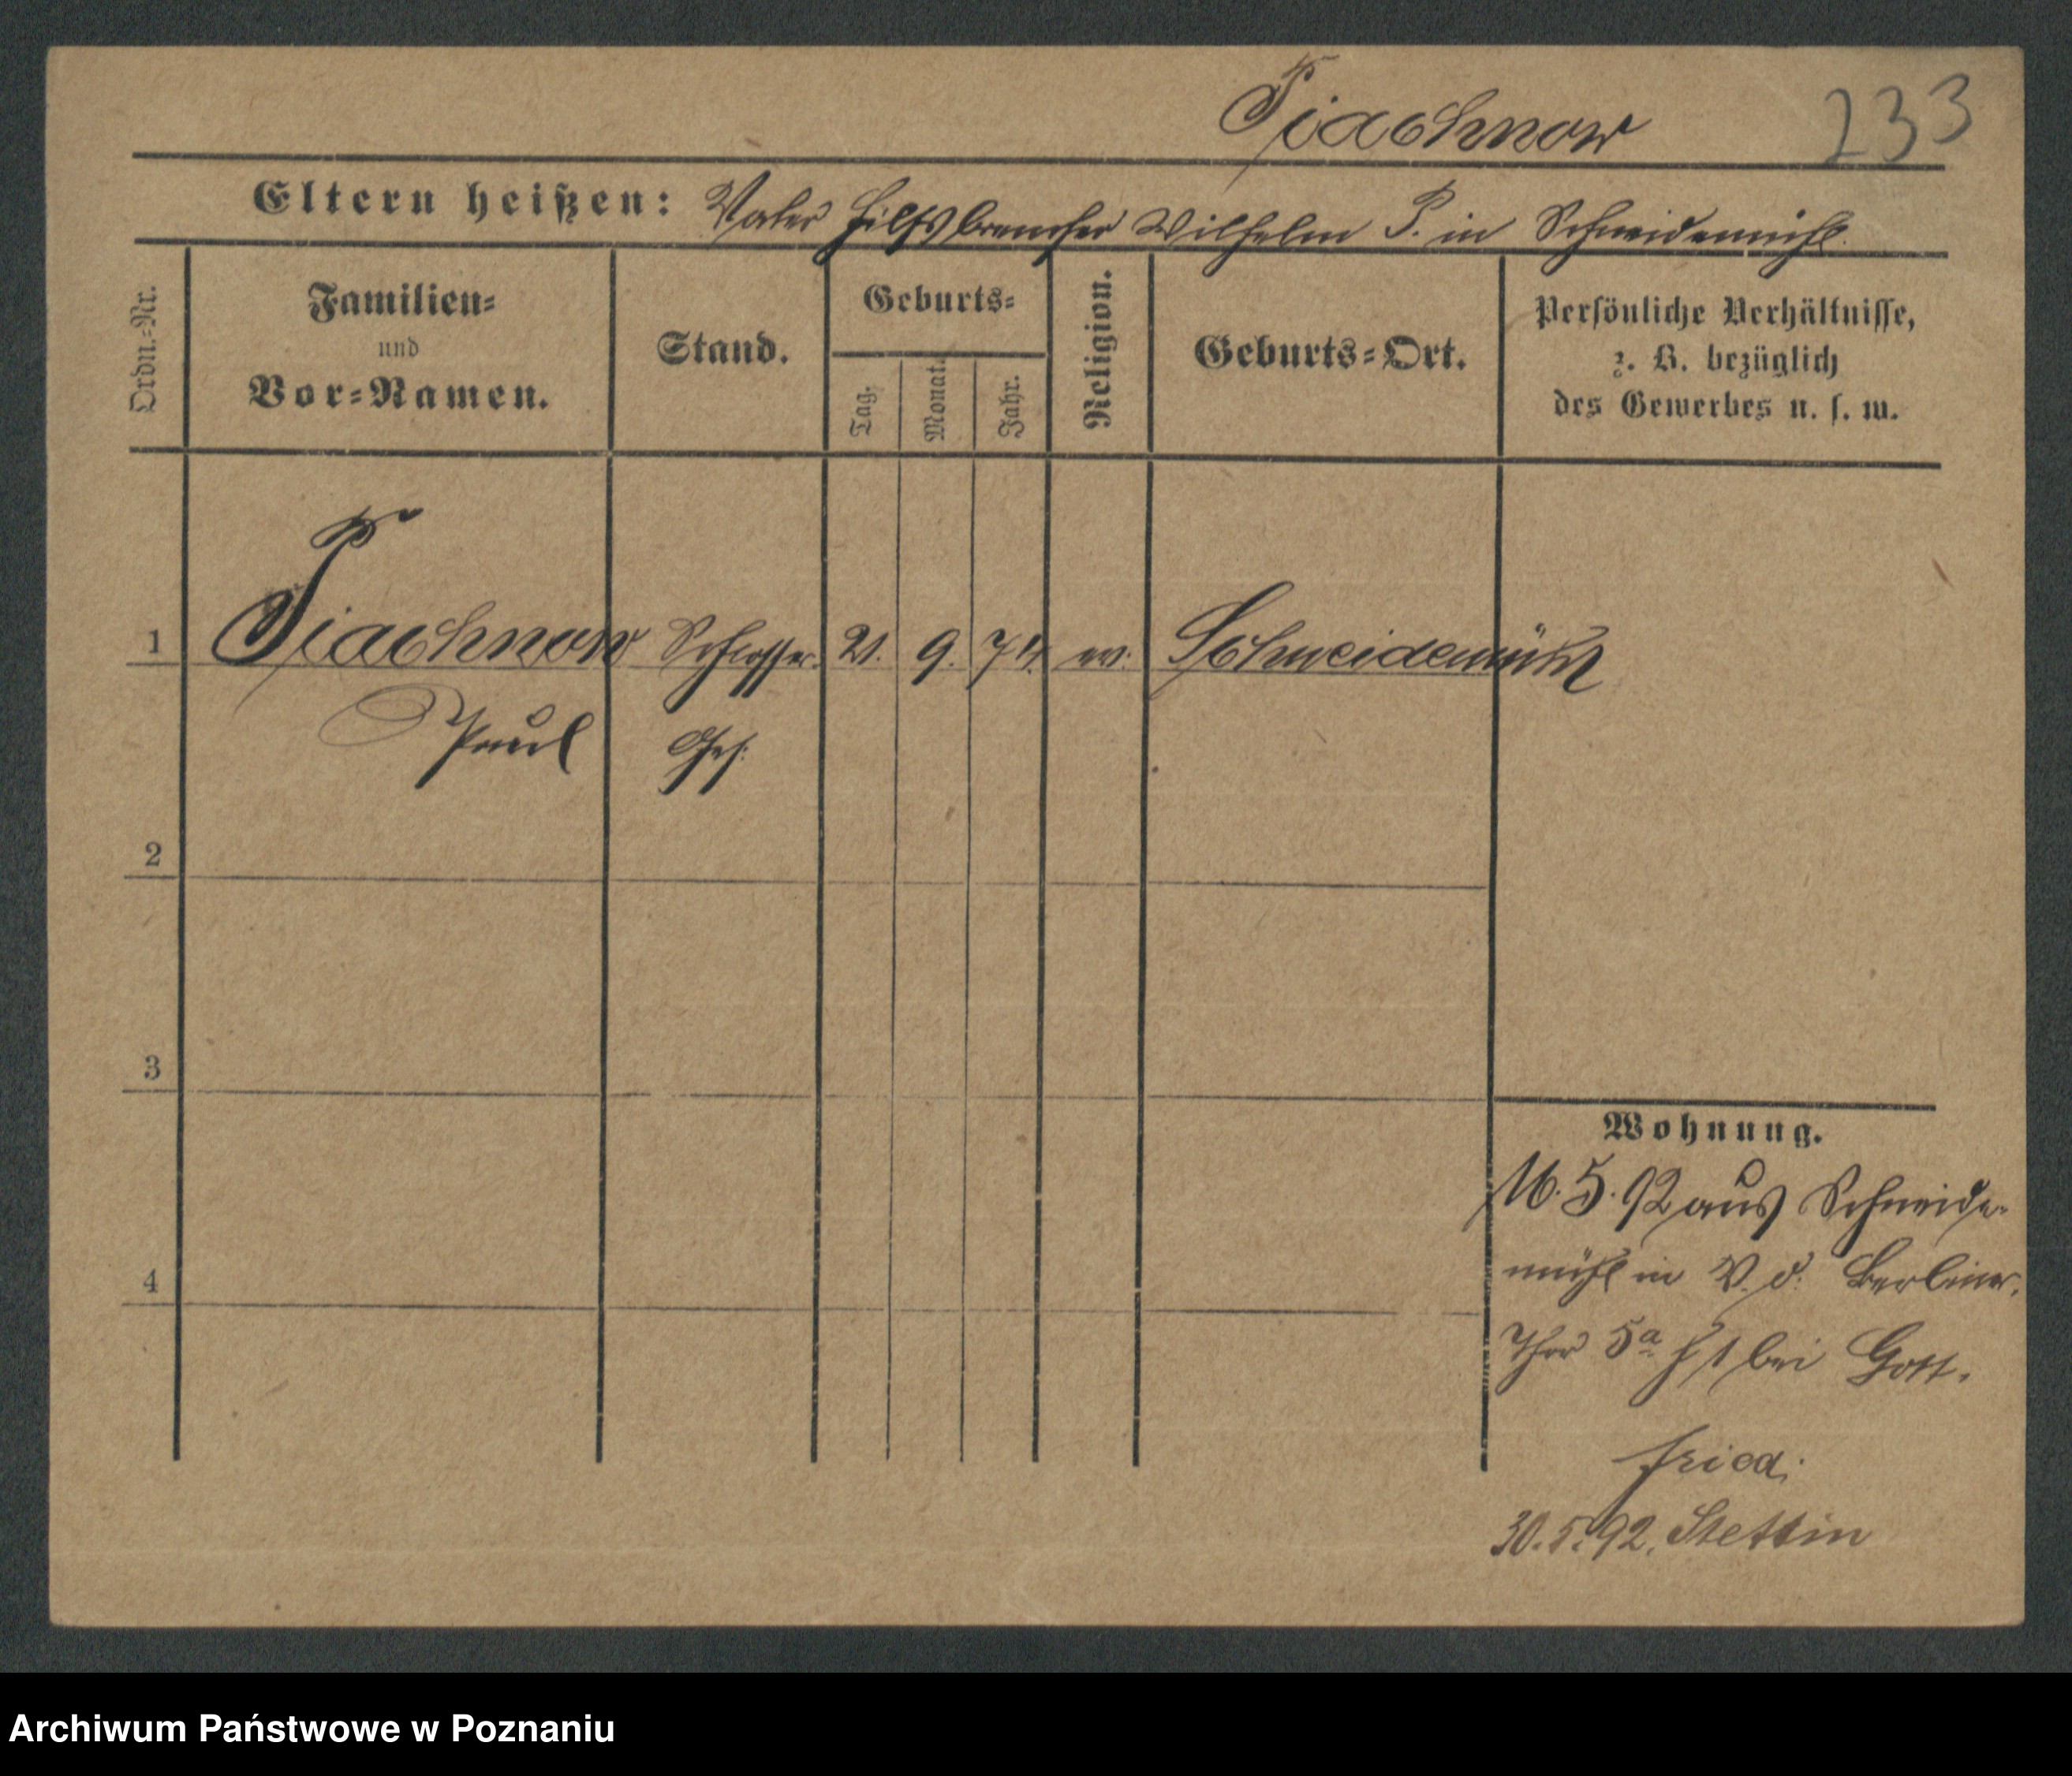 Piachnow 233
Eltern heißen: Vater Hilfsbremser Wilhelm P. in Schneidemühl.
Ordn.=Nr.
Familien=
und
Vor=Namen.
Stand.
Geburts=
Tag.
Monat.
Jahr.
Religion.
Geburts=Ort.
Persönliche Verhältnisse,
z. B. bezüglich
des Gewerbes u. s. w.
1 Piachnow Schlosser 21. 9. 74. ev. Schneidemühl
Paul Ges.
2
3
4
Wohnung.
16. 5. 92 aus Schneide-
mühl in V. d. Berliner.
Thor 5a H I bei Gott.
fried.
30.5.92. Stettin
Archiwum Państwowe w Poznaniu